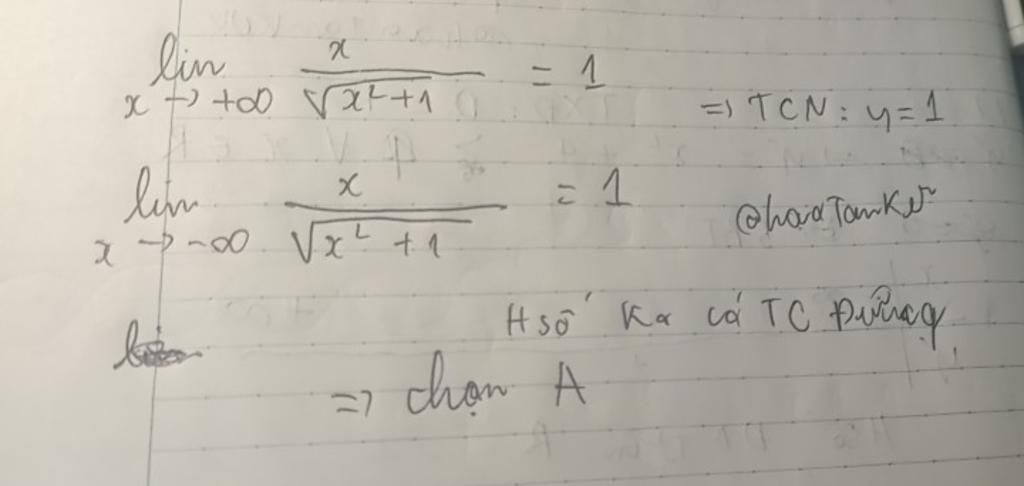 lim x → +∞ x/√(x²+1) = 1 => TCN: y=1
lim x → -∞ x/√(x²+1) = 1
H số Ko có TC Đứng
=> chọn A